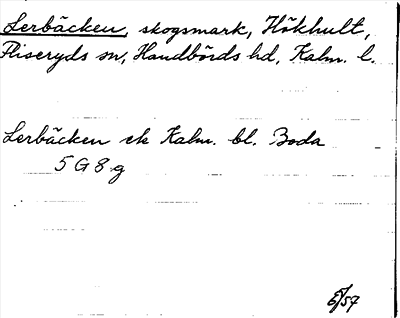 Lerbäcken, skogsmark, Hökhult,
Fliseryds sn, Handbörds hd, Kalm. l.
Lerbäcken ek Kalm. bl. Boda
5 G 8 g
E/57